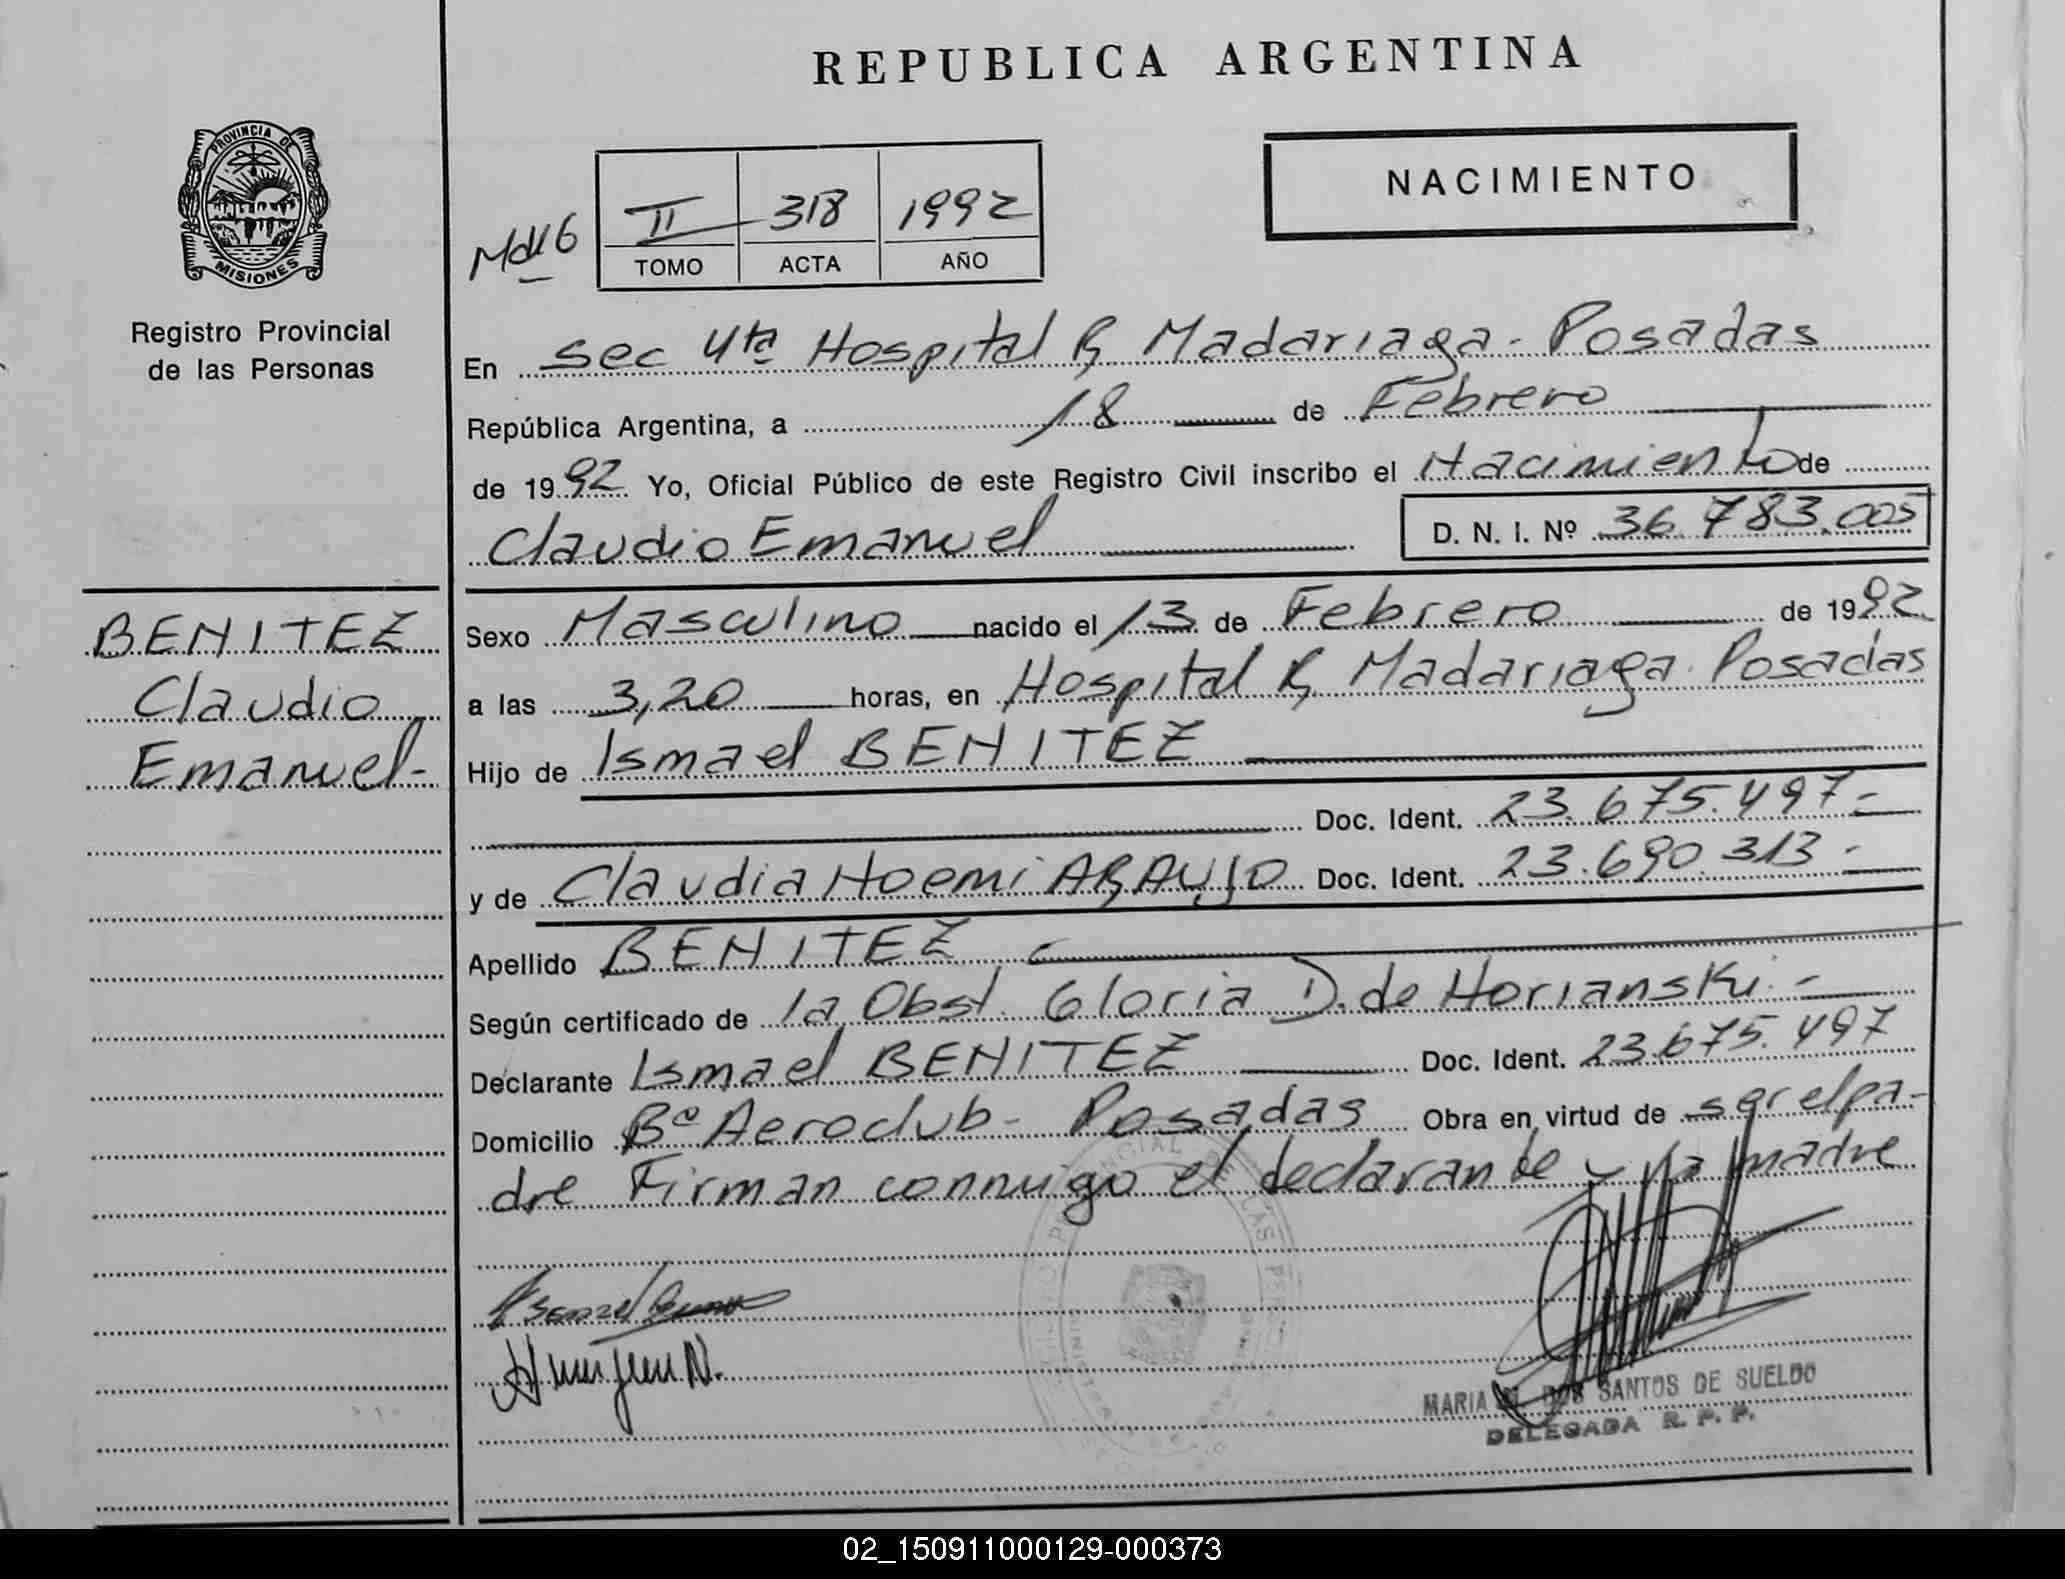 REPUBLICA ARGENTINA
PROVINCIA DE
MISIONES
Registro Provincial
de las Personas
NACIMIENTO
II 318 1992
TOMO ACTA AÑO
En Sec 4ta Hospital R, Madariaga - Posadas
República Argentina, a 18 de Febrero
de 1992 Yo, Oficial Público de este Registro Civil inscribo el Nacimiento de
Claudio Emanuel D. N. I. Nº 36.783.005
BENITEZ
Claudio
Emanuel-
Sexo Masculino nacido el 13 de Febrero de 1992
a las 3,20 horas, en Hospital R, Madariaga Posadas
Hijo de Ismael BENITEZ
Doc. Ident. 23.675.497-
y de Claudia Noemi ARAUJO Doc. Ident. 23.690.313-
Apellido BENITEZ
Según certificado de la Obst. Gloria D. de Norianski.-
Declarante Ismael BENITEZ Doc. Ident. 23.675.497
Domicilio Bº Aeroclub - Posadas Obra en virtud de ser el pa-
dre Firman conmigo el declarante y la madre
MARIA DOS SANTOS DE SUELDO
DELEGADA R. P. P.
02_150911000129-000373